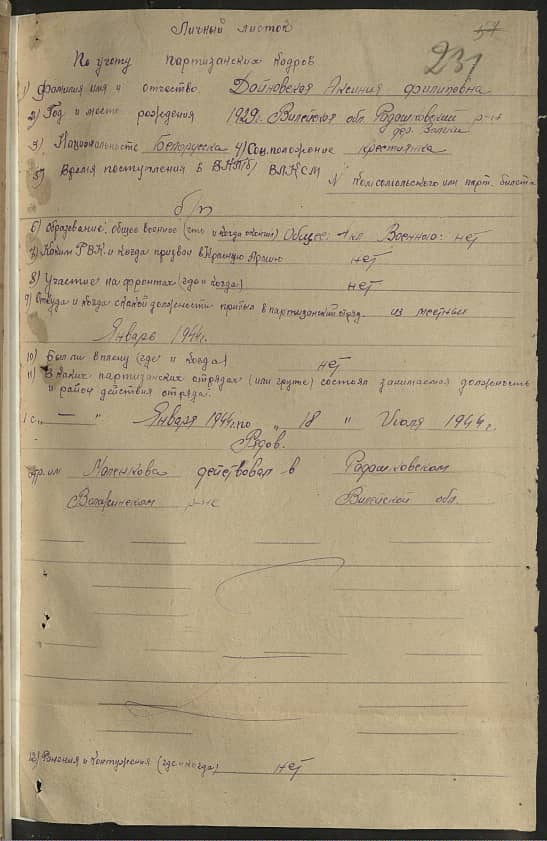 Личный листок
57
231
По учету партизанских кадров
1) Фамилия имя и отчество. Дайновская Аксиния Филиповна
2) Год и место рождения 1929г. Вилейская обл. Радошковский р-н
дер.
3) Национальность Белорусска 4) Соц. положение крестиянка
5) Время поступления в ВКП/б/ ВЛКСМ
N комсомольского или парт. билета
б/п
6) Образование: общее военное (что и когда окончил) Общее: 1 кл Военного: нет
7) Каким РВК и когда призван в Красную Армию нет
8) Участие на фронтах (где и когда) нет
9) Откуда и когда с какой должности прибыл в партизанский отряд. из местных
Январь 1944г.
10) Был ли в плену (где и когда) нет
11) В каких партизанских отрядах (или группе) состоял занимаемая должность
и район действия отряда:
1 с „ — „ Января 1944г. по „ 18 „ Июля 1944г.
Рядов.
отр. им Маленкова действовал в Радошковском
Воложинском р-не Вилейской обл.
12) Ранения и контужения (где и когда) нет